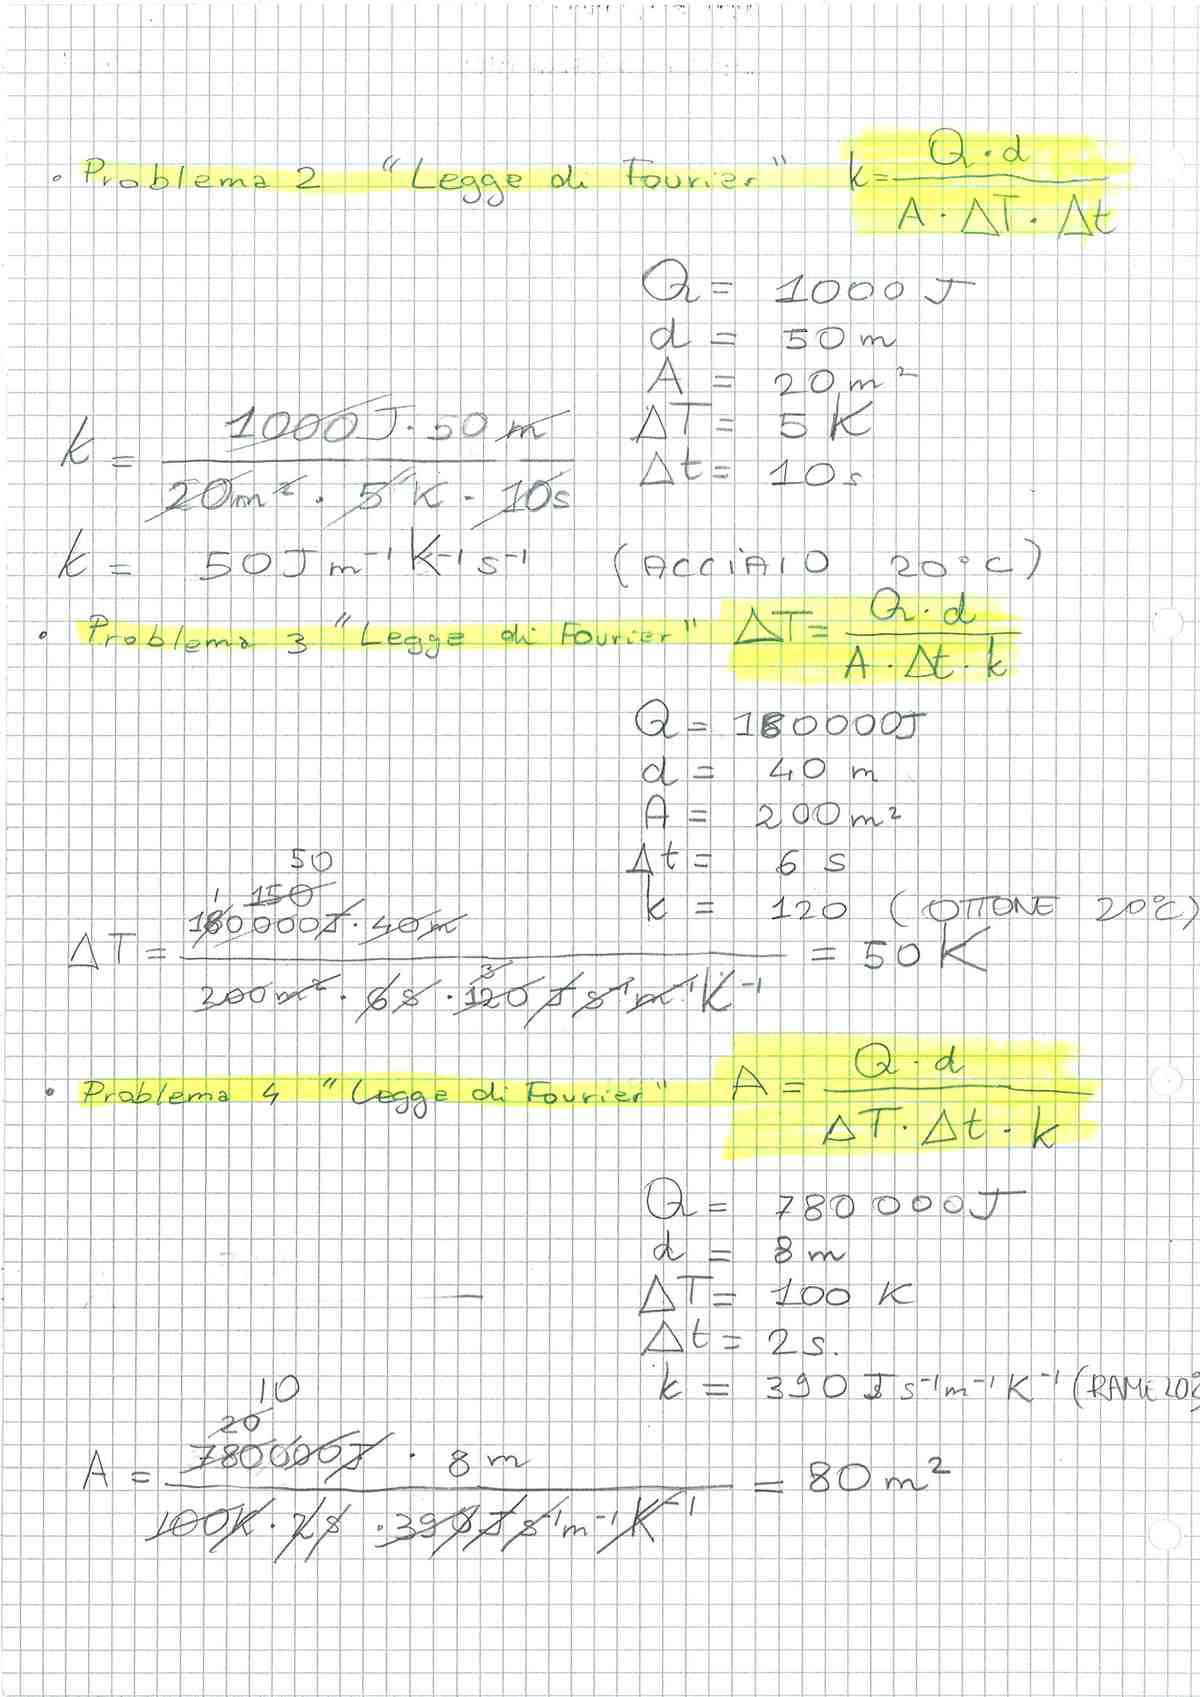 • Problema 2 "Legge di Fourier" k = Q·d / A·ΔT·Δt
Q = 1000 J
d = 50 m
A = 20 m²
ΔT = 5 K
Δt = 10 s
k = 1000J·50m / 20m²·5K·10s
k = 50 J m⁻¹ K⁻¹ s⁻¹ (ACCIAIO 20°C)
• Problema 3 "Legge di Fourier" ΔT = Q·d / A·Δt·k
Q = 180000J
d = 40 m
A = 200 m²
Δt = 6 s
k = 120 (OTTONE 20°C)
50
1 150
ΔT = 180000J·40m / 200m²·6s·120 J s⁻¹ m⁻¹ K⁻¹ = 50 K
3
• Problema 4 "Legge di Fourier" A = Q·d / ΔT·Δt·k
Q = 780 000J
d = 8 m
ΔT = 100 K
Δt = 2 s.
k = 390 J s⁻¹ m⁻¹ K⁻¹ (RAME 20°
10
20
A = 780000J · 8 m / 100K·2s·390J s⁻¹ m⁻¹ K⁻¹ = 80 m²